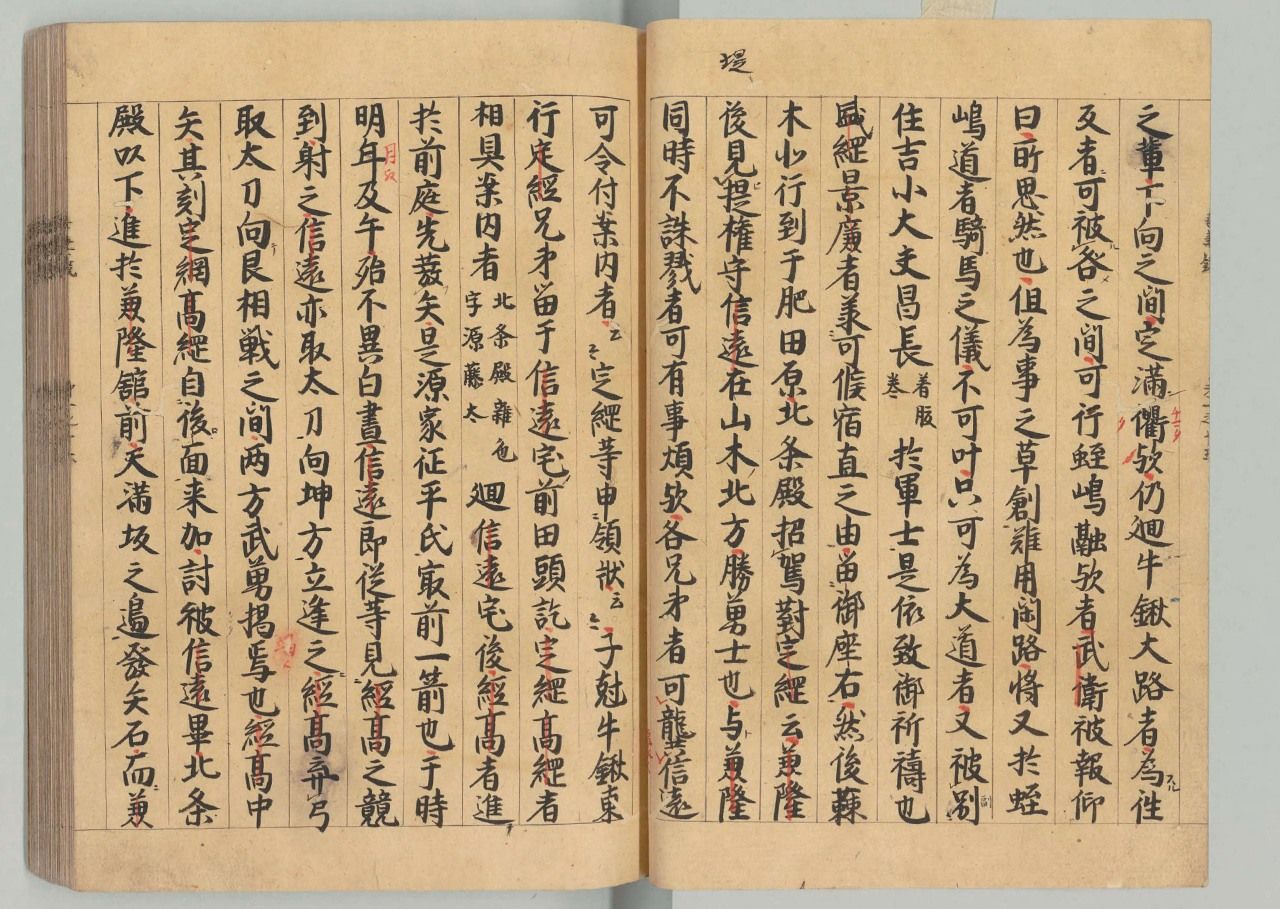 堤
之輩下向之間定満衢欤仍廻牛鍬大路者為往
反者可被咎之間可行蛭嶋融欤者武衛被報仰
曰所思然也但為事之草創難用閑路将又於蛭
嶋道者騎馬之儀不可叶只可為大道者又被別
住吉小大夫昌長 着服巻 於軍士是依致御祈禱也
盛綱景廉者義可候宿直之由留御座右然後蕀
木北行到于肥田原北条殿招駕對定綱云兼隆
後見堤権守信遠在山木北方勝勇士也与兼隆
同時不誅戮者可有事煩欤各兄弟者可龍信遠
可令付案内者云々定綱等申領状云々子尅牛鍬東
行定綱兄弟留于信遠宅前田頭訖定綱高綱者
相具案内者 北条殿雑色字源藤太 廻信遠宅後経高者進
於前庭先發矢是源家征平氏冣前一箭也于時
明年及午殆不異白晝信遠郎従等見経高之競
月
到射之信遠亦取太刀向坤方立逢之経高弃弓
取太刀向艮相戦之間両方武勇掲焉也経高中
矢其刻定綱高綱自後面来加討被信遠畢北条
殿以下進於兼隆舘前天満坂之邉發矢石而兼